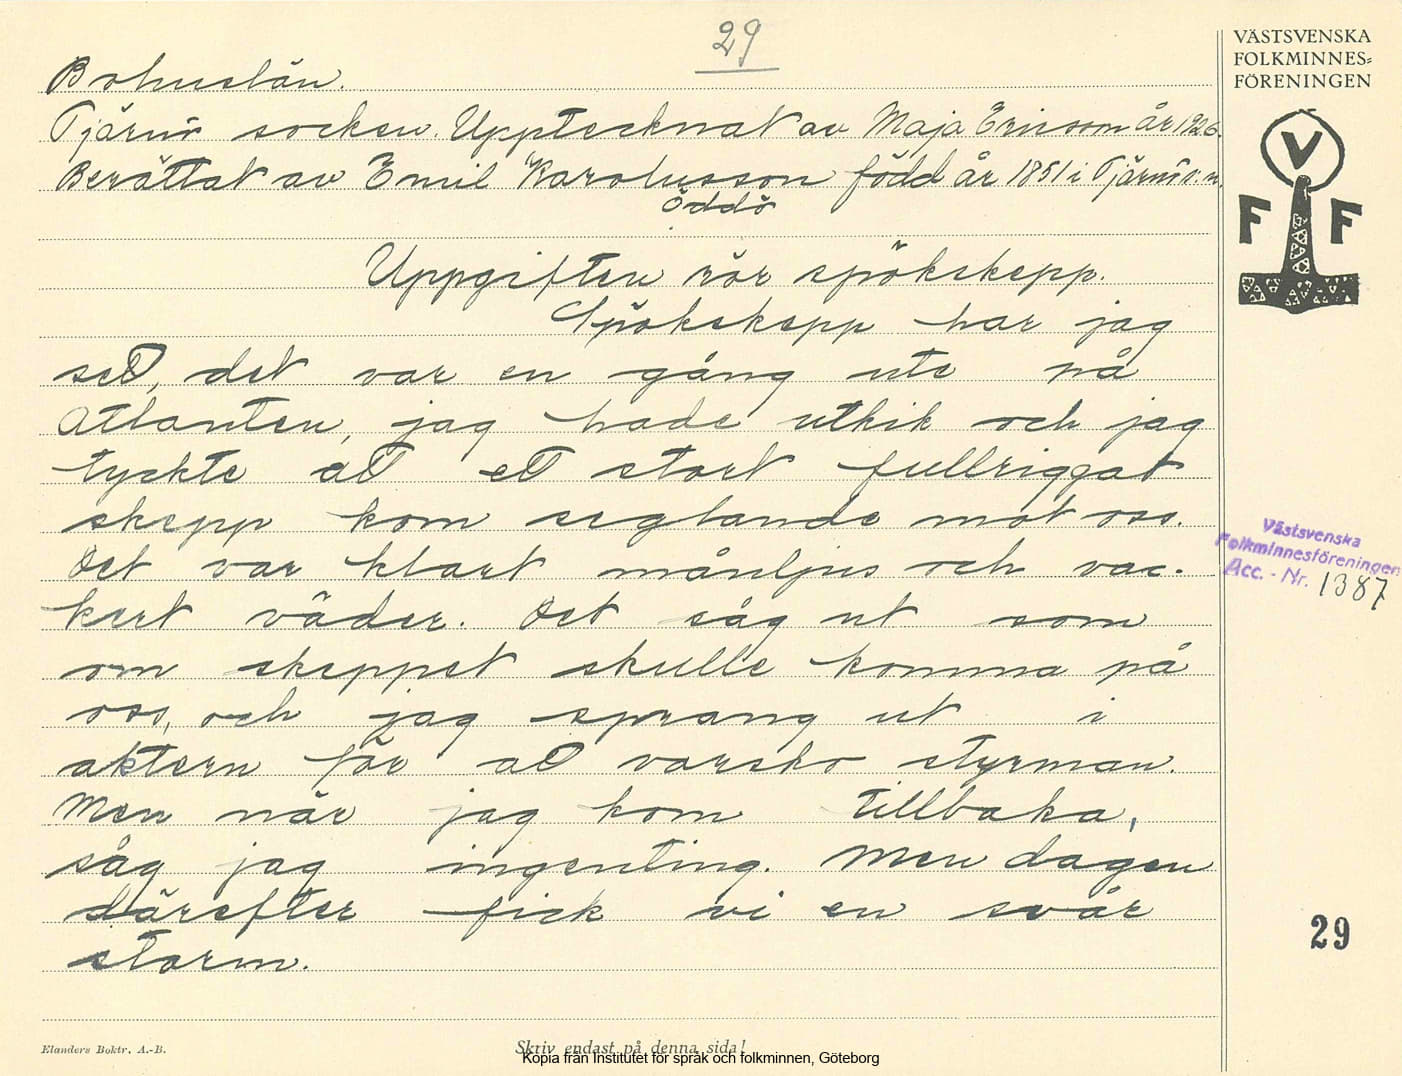 29
VÄSTSVENSKA
FOLKMINNES=
FÖRENINGEN
V
F F
Bohuslän.
Tjärnö socken. Upptecknat av Maja Ericson år 1926.
Berättat av Emil Karolusson född år 1851 i Tjärnö s:n.
Öddö
Uppgiften rör spökskepp.
Spökskepp har jag
sett, det var en gång ute på
Atlanten, jag hade utkik och jag
tyckte att ett stort fullriggat
skepp kom seglande mot oss.
Det var klart månljus och vac-
kert väder. Det såg ut som
om skeppet skulle komma på
oss, och jag sprang ut i
aktern för att varsko styrman.
Men när jag kom tillbaka,
såg jag ingenting. Men dagen
därefter fick vi en svår
storm.
Västsvenska
Folkminnesföreningen
Acc. - Nr. 1387
29
Elanders Boktr. A.-B.
Skriv endast på denna sida!
Kopia från Institutet för språk och folkminnen, Göteborg